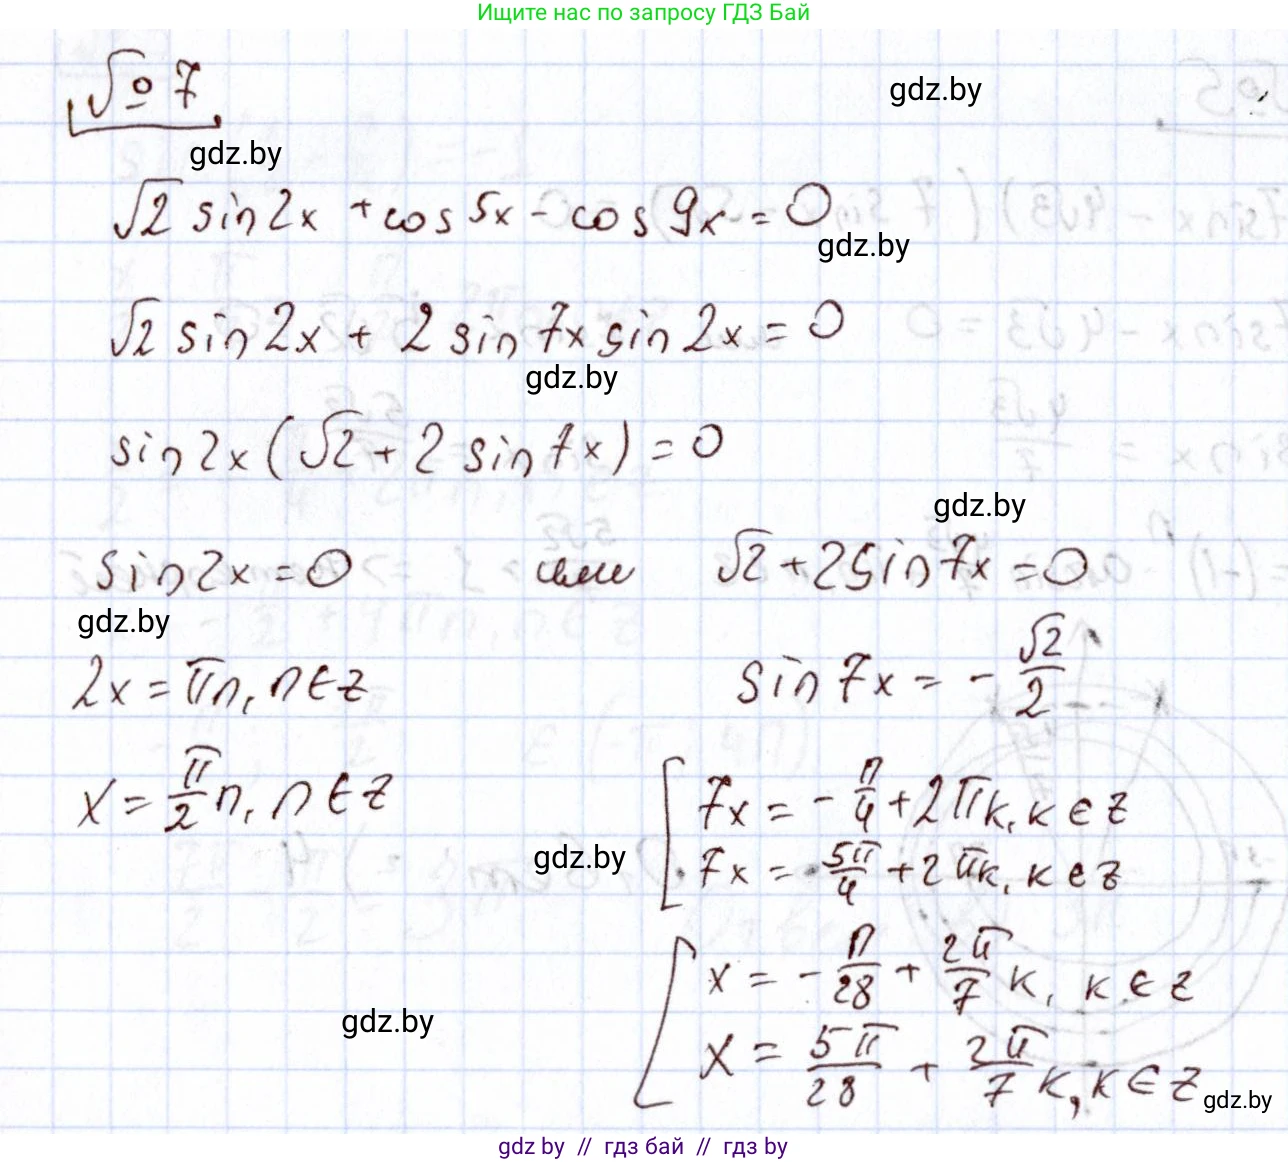 Ищите нас по запросу ГДЗ Бай
№ 7
gdz.by
gdz.by
√2 sin2x + cos5x - cos9x = 0
gdz.by
√2 sin2x + 2 sin7x sin2x = 0
gdz.by
sin2x (√2 + 2 sin7x) = 0
gdz.by
sin2x = 0 или √2 + 2sin7x = 0
gdz.by
2x = πn, n ∈ z sin7x = - √2/2
x = π/2 n, n ∈ z
7x = - π/4 + 2πk, k ∈ z
gdz.by
7x = - 5π/4 + 2πk, k ∈ z
x = - π/28 + 2π/7 k, k ∈ z
gdz.by
x = 5π/28 + 2π/7 k, k ∈ z
gdz.by
gdz by // гдз бай // гдз by